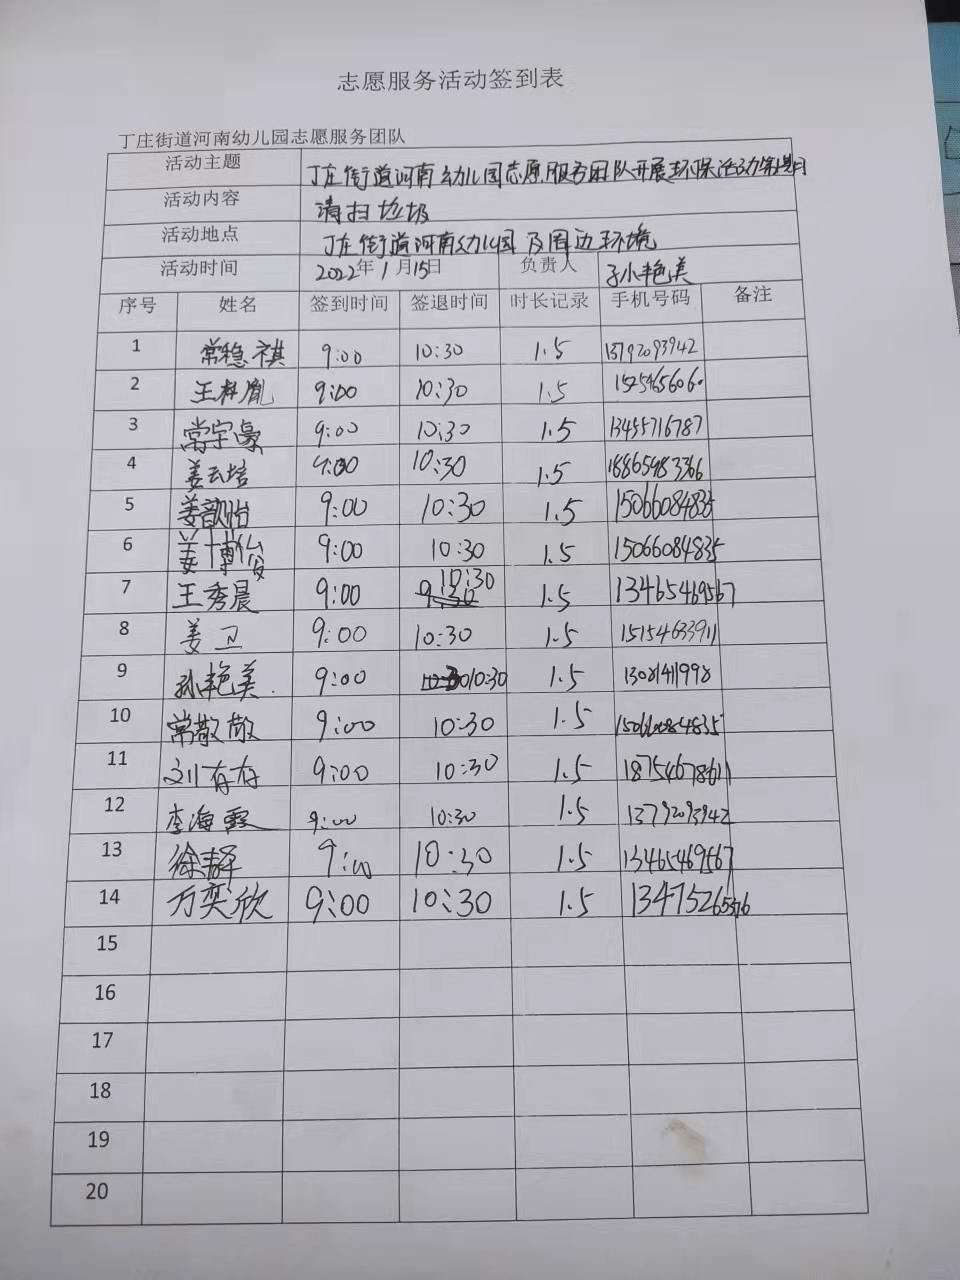 志愿服务活动签到表
丁庄街道河南幼儿园志愿服务团队
活动主题 丁庄街道河南幼儿园志愿服务团队开展环保活动
活动内容 清扫垃圾
活动地点 丁庄街道河南幼儿园及周边环境
活动时间 2022年1月15日 负责人 孙艳美
序号 姓名 签到时间 签退时间 时长记录 手机号码 备注
1 常稳祺 9:00 10:30 1.5 13792093942
2 王科胤 9:00 10:30 1.5 15254656060
3 常宇豪 9:00 10:30 1.5 13455716787
4 姜云培 9:00 10:30 1.5 18865983366
5 姜歆怡 9:00 10:30 1.5 15066084835
6 姜博俊 9:00 10:30 1.5 15066084835
7 王秀晨 9:00 10:30 1.5 13465469567
8 姜卫 9:00 10:30 1.5 15154633911
9 孙艳美 9:00 10:30 1.5 13081411998
10 常敬敬 9:00 10:30 1.5
11 刘存存 9:00 10:30 1.5 18754678611
12 李海霞 9:00 10:30 1.5 13792093942
13 徐静 9:00 10:30 1.5 13465469567
14 万奕欣 9:00 10:30 1.5 13475265376
15
16
17
18
19
20